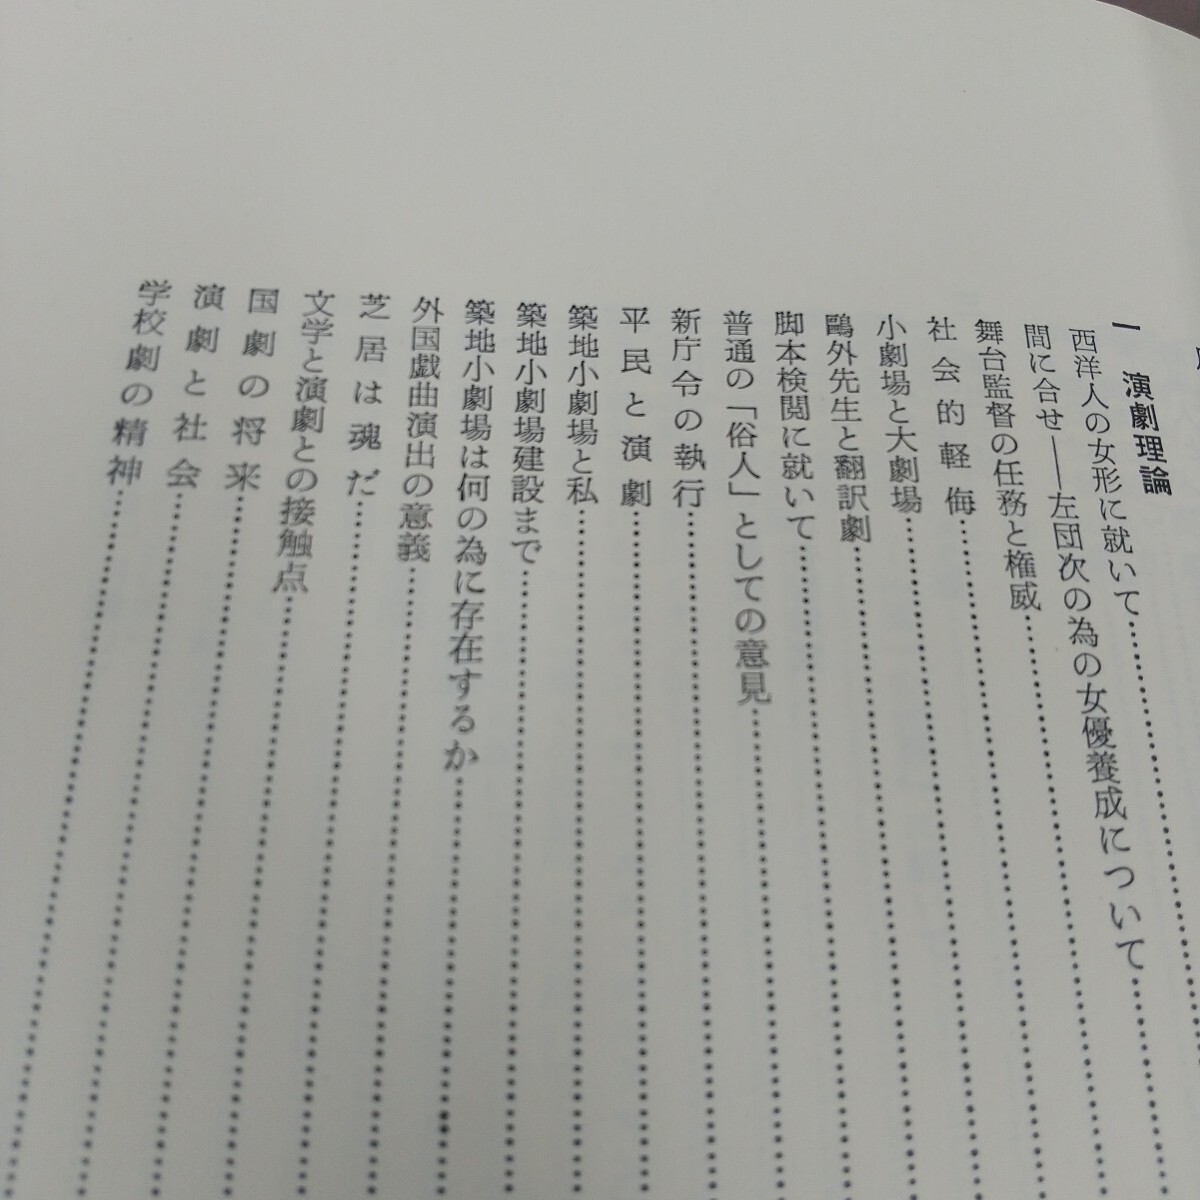 一　演劇理論
西洋人の女形に就いて
間に合せ――左団次の為の女優養成について
舞台監督の任務と権威
社会的軽侮
小劇場と大劇場
鷗外先生と翻訳劇
脚本検閲に就いて
普通の「俗人」としての意見
新庁令の執行
平民と演劇
築地小劇場と私
築地小劇場建設まで
築地小劇場は何の為に存在するか
外国戯曲演出の意義
芝居は魂だ
文学と演劇との接触点
国劇の将来
演劇と社会
学校劇の精神